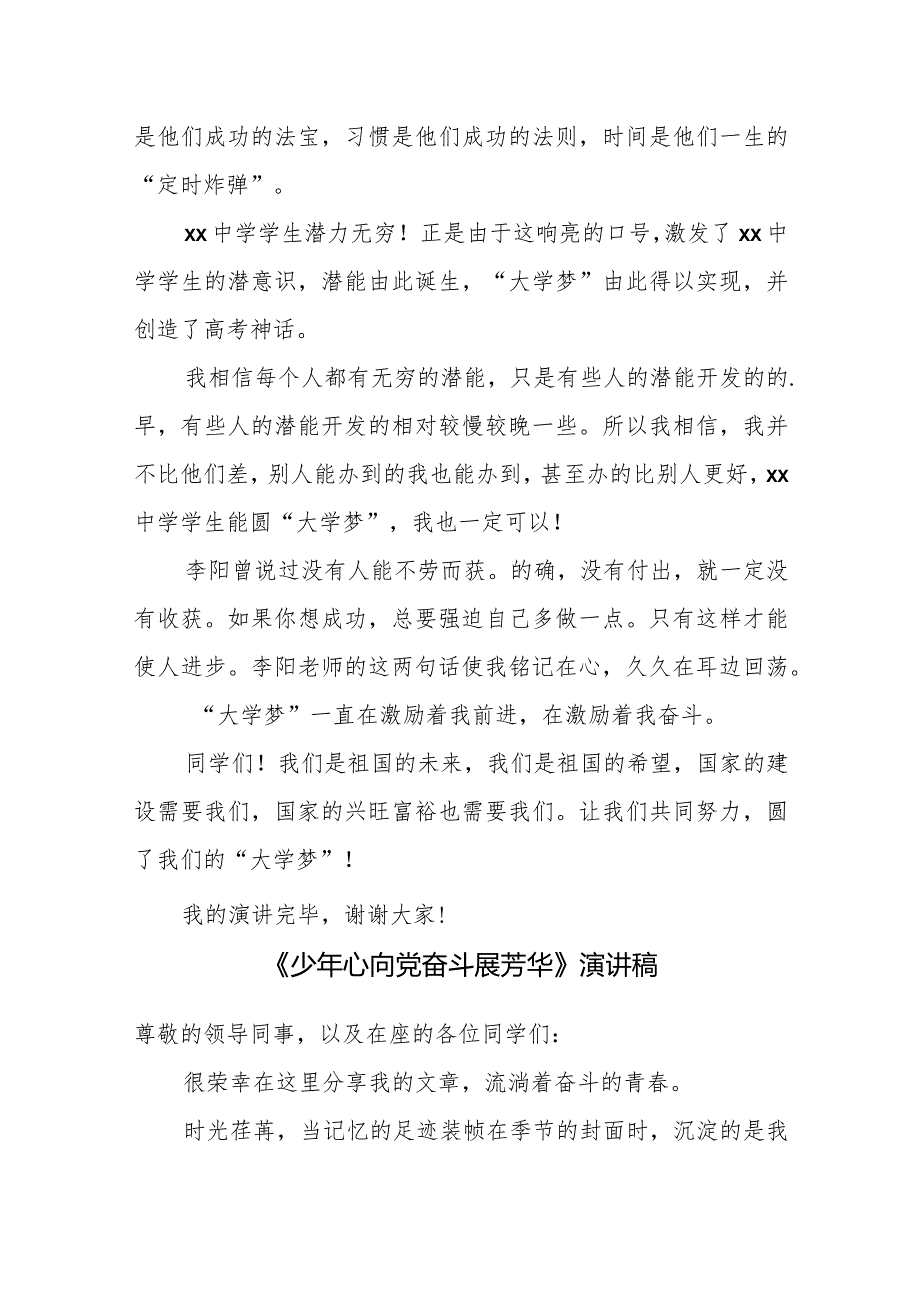 是他们成功的法宝，习惯是他们成功的法则，时间是他们一生的
“定时炸弹”。
xx中学学生潜力无穷！正是由于这响亮的口号，激发了xx中
学学生的潜意识，潜能由此诞生，“大学梦”由此得以实现，并
创造了高考神话。
我相信每个人都有无穷的潜能，只是有些人的潜能开发的的.
早，有些人的潜能开发的相对较慢较晚一些。所以我相信，我并
不比他们差，别人能办到的我也能办到，甚至办的比别人更好，xx
中学学生能圆“大学梦”，我也一定可以！
李阳曾说过没有人能不劳而获。的确，没有付出，就一定没
有收获。如果你想成功，总要强迫自己多做一点。只有这样才能
使人进步。李阳老师的这两句话使我铭记在心，久久在耳边回荡。
“大学梦”一直在激励着我前进，在激励着我奋斗。
同学们！我们是祖国的未来，我们是祖国的希望，国家的建
设需要我们，国家的兴旺富裕也需要我们。让我们共同努力，圆
了我们的“大学梦”！
我的演讲完毕，谢谢大家！
《少年心向党奋斗展芳华》演讲稿
尊敬的领导同事，以及在座的各位同学们：
很荣幸在这里分享我的文章，流淌着奋斗的青春。
时光荏苒，当记忆的足迹装帧在季节的封面时，沉淀的是我